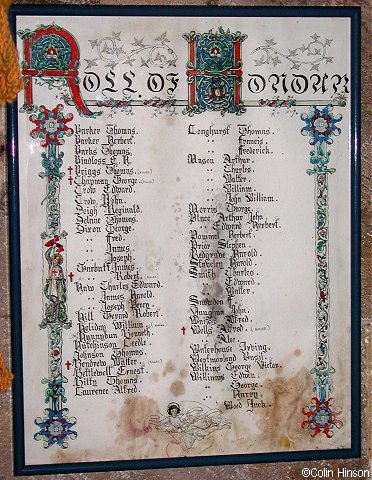 Roll of Honour
Parker Thomas.
Parker Herbert.
Parks Thomas.
Pindloss E. R.
Chapman George.
Crow Edward.
Crow John.
Leigh Reginald.
Dixon George.
" Fred.
" James.
" Joseph.
Garbutt James
" Robert.
Charles Edward.
" James Arnold.
" Joseph Percy.
Hill George Robert.
Holiday William
Kenneth.
Hutchinson Leslie.
Johnson Thomas.
Walter.
Kettlewell Ernest.
Thomas.
Laurence Alfred.
Longhurst Thomas.
" Francis.
" Frederick.
Mason Arthur.
" Charles
" Walter.
" William.
" John William.
Morris George.
Place Arthur John
" Edward Herbert.
Herbert.
Prior Stephen.
Redgrave Harold.
Arnold.
Smith Charles.
" Edward.
" Walter.
John.
Alfred.
Wells Alfred.
" Alec.
Waterhouse Irving.
Westmorland Basil.
Wilkins George Victor.
Wilkinson Edwin.
" George.
" Harry.
Wood Jack.
©Colin Hinson